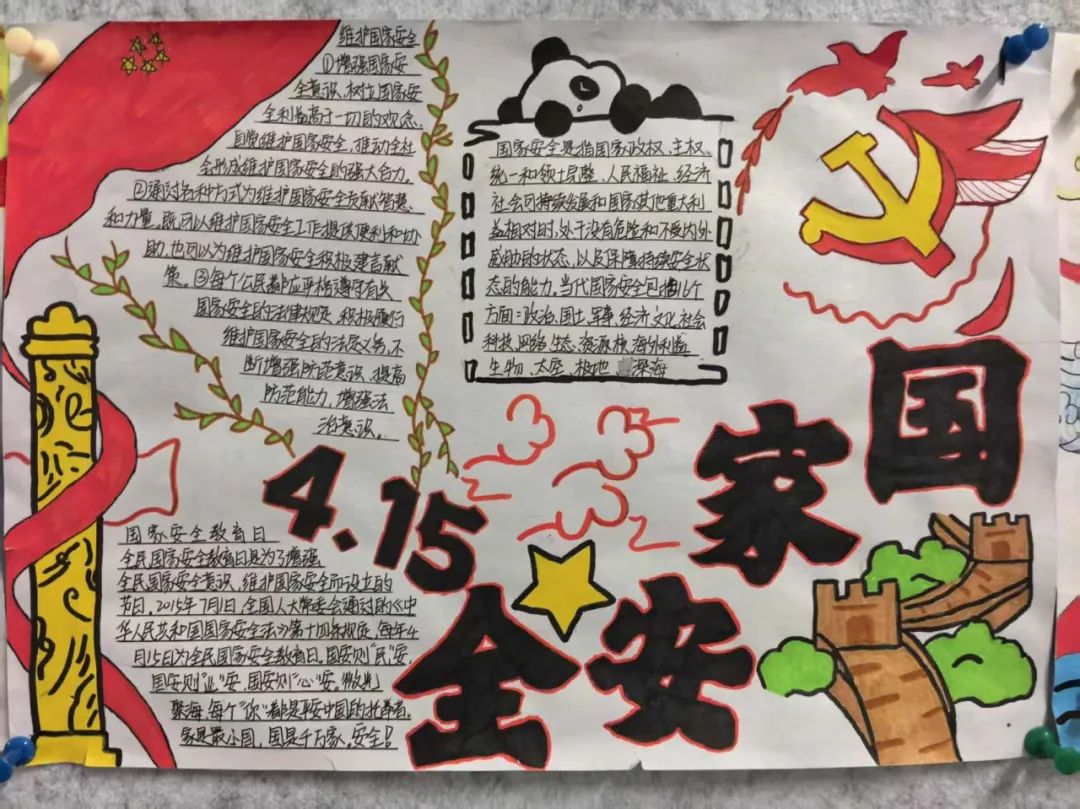 维护国家安全
①增强国家安
全意识,树立国家安
全利益高于一切的观念,
自觉维护国家安全,推动全社
会形成维护国家安全的强大合力,
②通过各种方式为维护国家安全贡献智慧
和力量,既可以维护国家安全工作提供便利和协
助,也可以为维护国家安全积极建言献
策。③每个公民都应严格遵守有关
国家安全的法律规定,积极履行
维护国家安全的法定义务,不
断增强防范意识,提高
防范能力,增强法
治意识。
国家安全是指国家政权、主权、
统一和领土完整、人民福祉、经济
社会可持续发展和国家其他重大利
益相对时,处于没有危险和不受内外
威胁的状态,以及保障持续安全状
态的能力。当代国家安全包括16个
方面:政治、国土、军事、经济、文化、社会
科技、网络、生态、资源、核、海外利益
生物、太空、极地、深海
国家安全
4.15
国家安全教育日
全民国家安全教育日是为了增强
全民国家安全意识,维护国家安全而设立的
节日。2015年7月1日,全国人大常委会通过的《中
华人民共和国国家安全法》第十四条规定,每年4
月15日为全民国家安全教育日。国安则“民”安,
国安则“业”安,国安则“心”安,微光
聚海,每个“你”都是平安中国的
家是最小国,国是千万家。安全